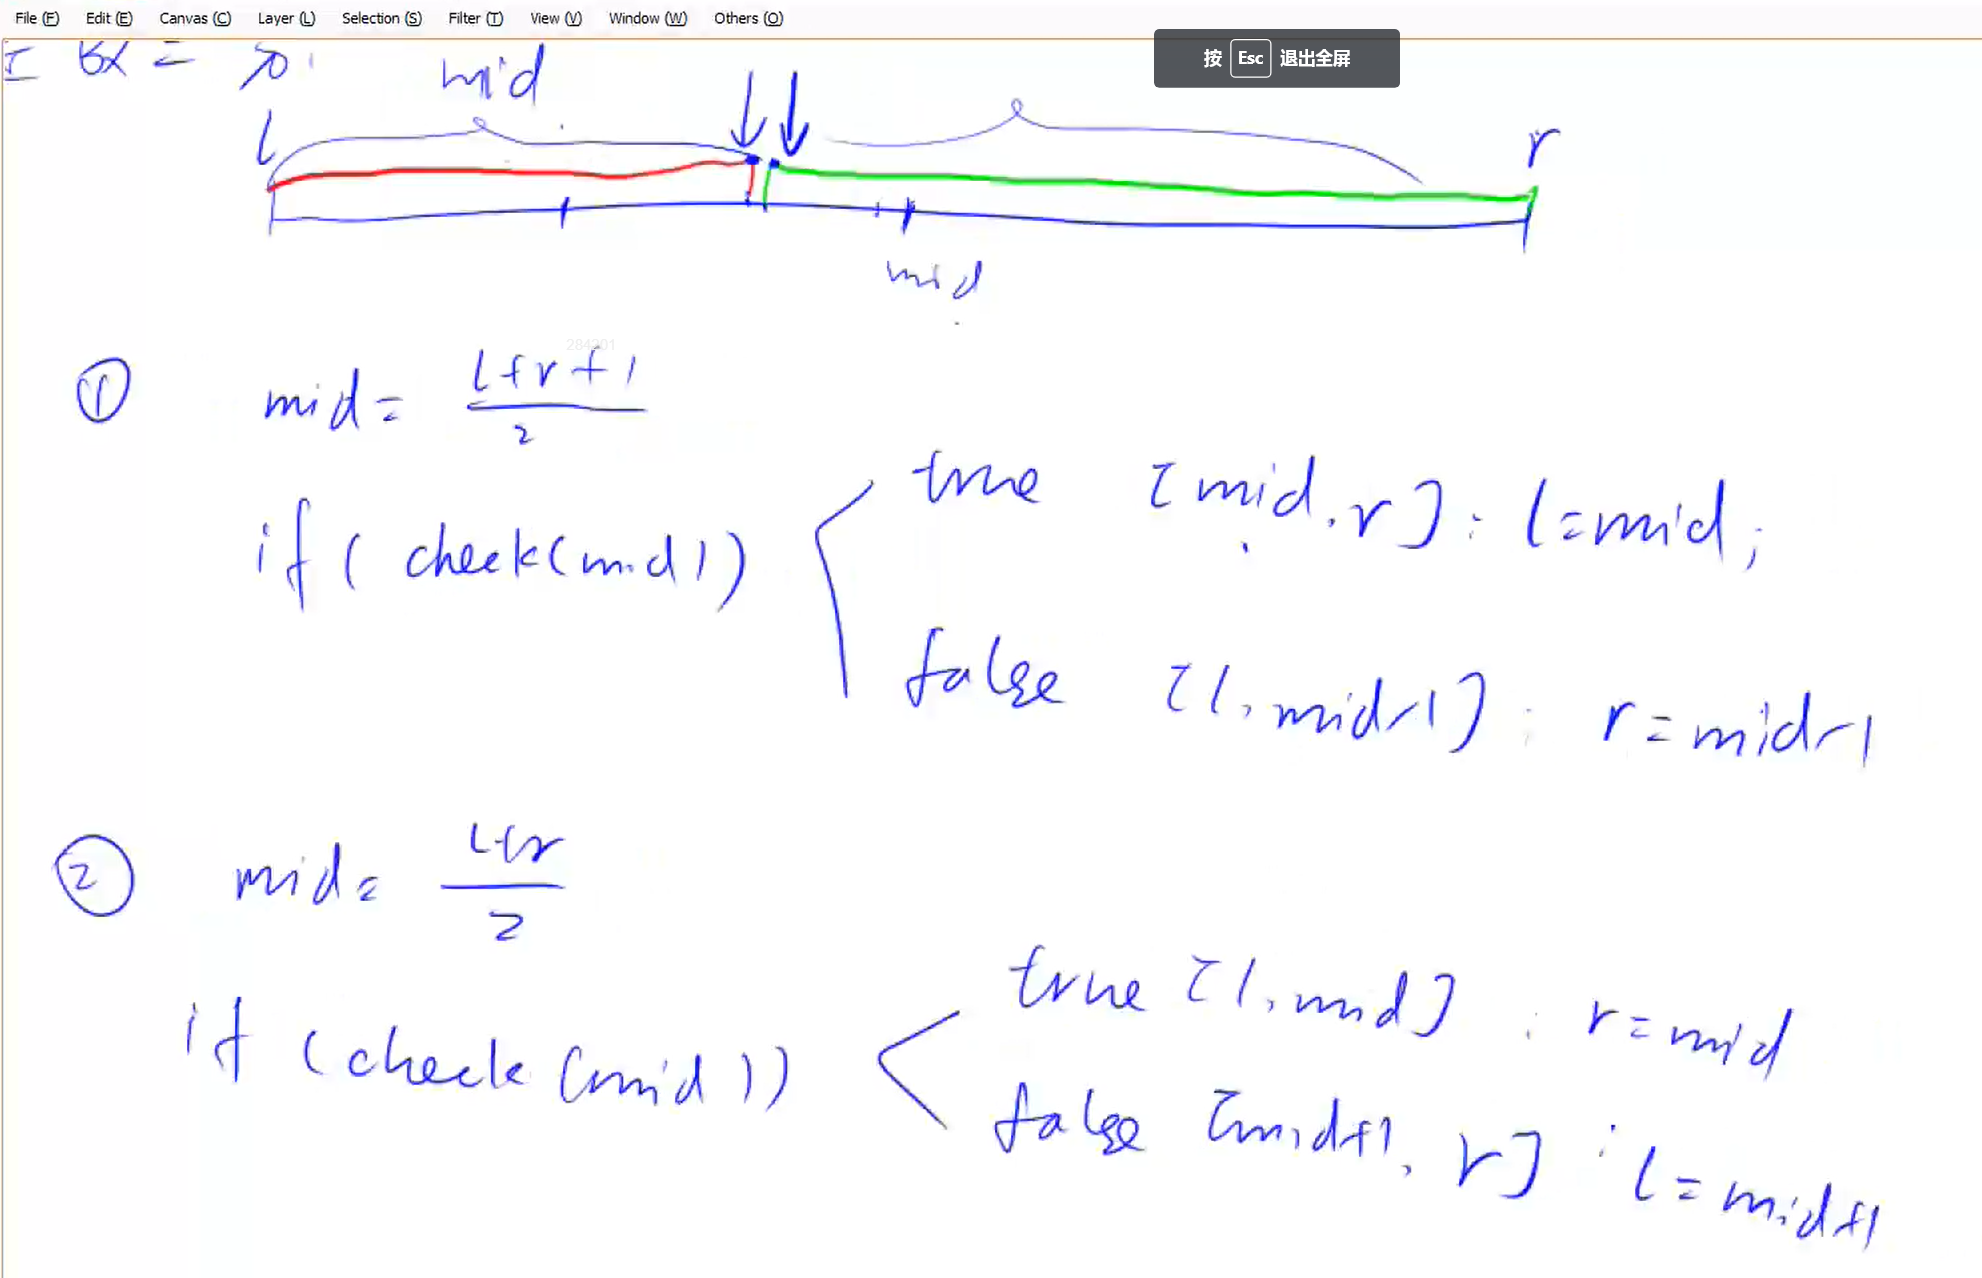 File (F) Edit (E) Canvas (C) Layer (L) Selection (S) Filter (T) View (V) Window (W) Others (O)
按 Esc 退出全屏
mid
l
r
mid
284201
① mid = l+r+1
2
if ( check(mid))
true [mid, r] : l=mid;
false [l, mid-1] : r=mid-1
② mid = l+r
2
if (check (mid))
true [l, mid] : r=mid
false [mid+1, r] : l=mid+1